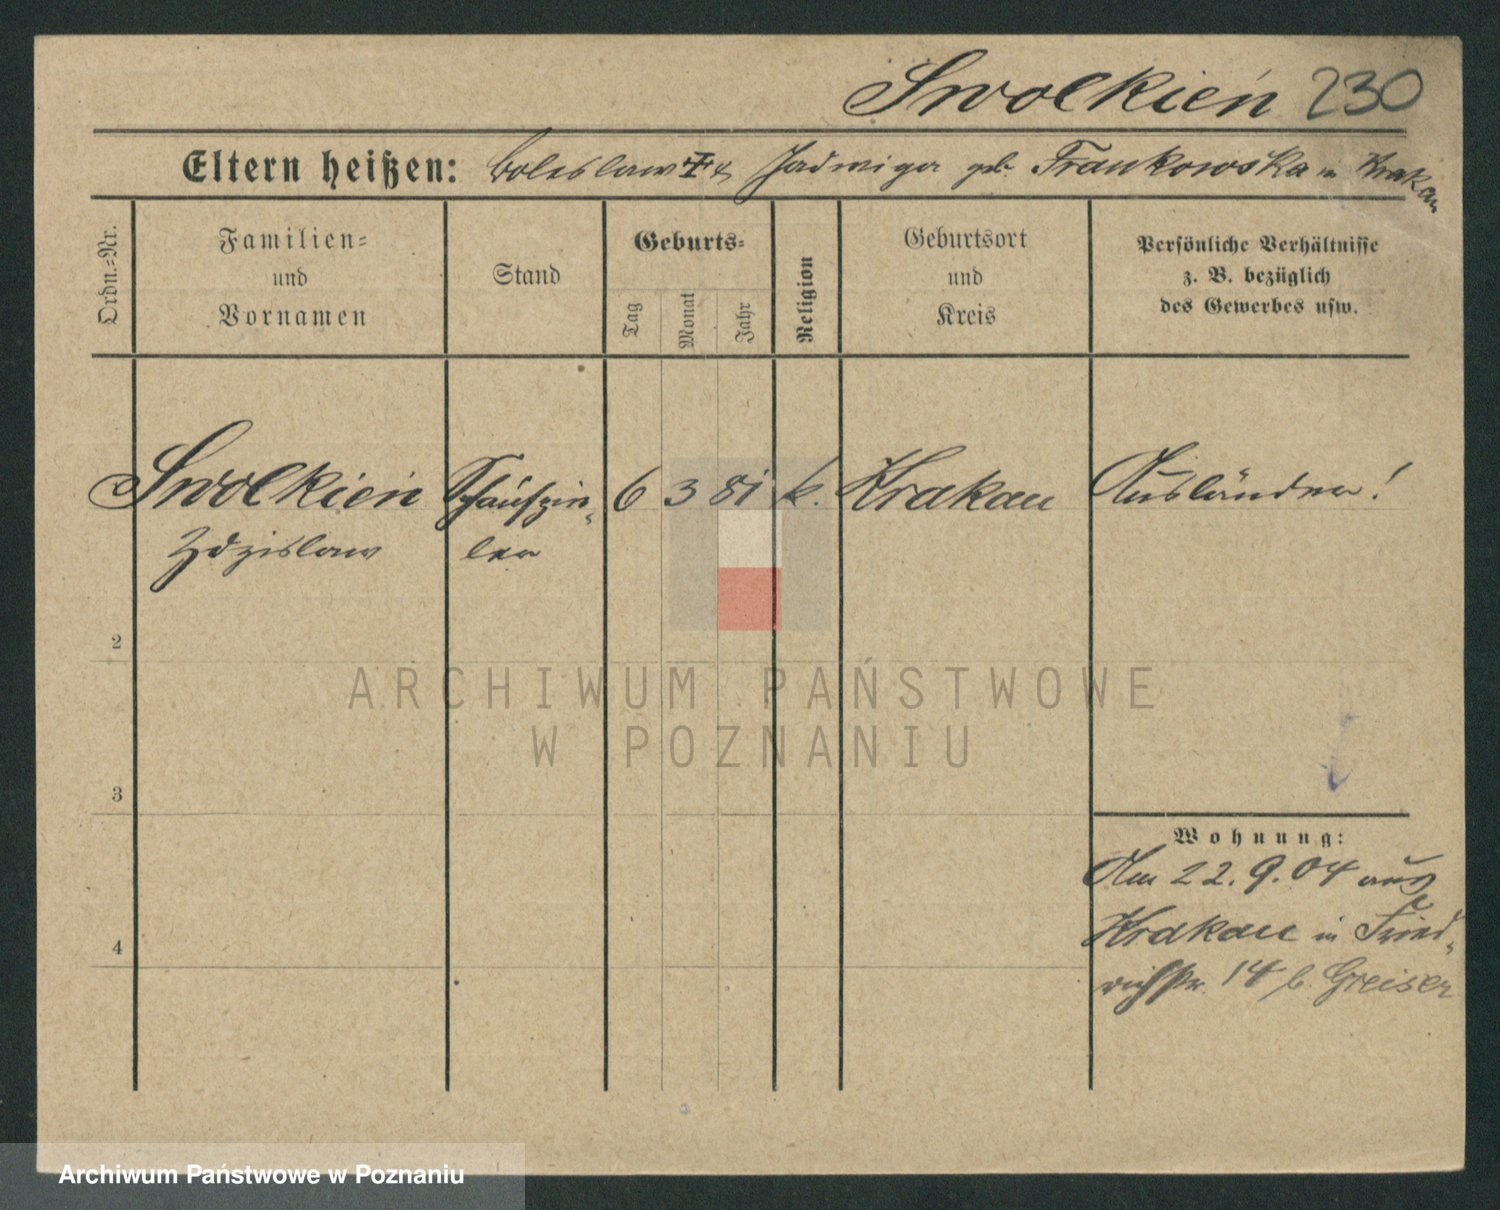 Swolkień 230
Eltern heißen: Boleslaw ✝ & Jadwiga geb. Frankowska in Krakau
Ordn.=Nr.
Familien=
und
Vornamen
Stand
Geburts=
Tag
Monat
Jahr
Religion
Geburtsort
und
Kreis
Persönliche Verhältnisse
z. B. bezüglich
des Gewerbes usw.
Swolkień Schauspie- 6 3 81 k. Krakau Ausländer!
Zdzislaw ler
2
ARCHIWUM PAŃSTWOWE
W POZNANIU
3
Wohnung:
Am 22.9.04 aus
Krakau in Fried-
richstr. 14 b. Greiser
4
Archiwum Państwowe w Poznaniu